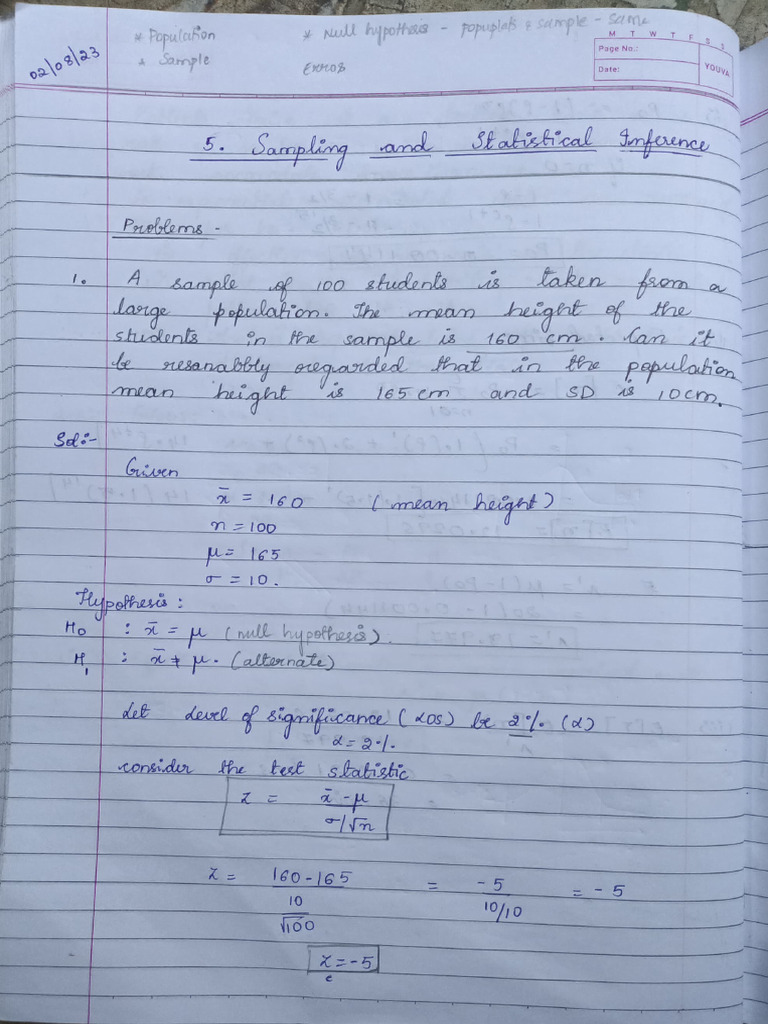 * Population * Null hypothesis - & sample - same
02/08/23 * Sample Error
M T W T F S S
Page No.:
Date:
YOUVA
5. Sampling and Statistical Inference
Problems -
1. A sample of 100 students is taken from a
large population. The mean height of the
students in the sample is 160 cm. Can it
be resanabbly regarded that in the population
mean height is 165 cm and SD is 10cm.
Sol:-
Given
x̄ = 160 (mean height)
n = 100
μ = 165
σ = 10.
Hypothesis :
H₀ : x̄ = μ (null hypothesis).
H₁ : x̄ ≠ μ. (alternate)
Let level of significance (LOS) be 2% (α)
α = 2%.
consider the test statistic
z = x̄ - μ / σ/√n
z = 160-165 / 10/√100 = -5 / 10/10 = -5
z = -5
c